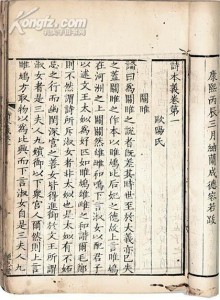 康熙丙辰三月納蘭成德容若跋
詩本義卷第一
歐陽氏
關雎
論曰為關雎之說者既差其時世至於大義亦已失
之蓋關雎之作本以雎鳩比后妃之德故上言雎鳩
在河洲之上關關然雄雌和鳴下言淑女以配君子
以述文王太姒為好匹如雎鳩雄雌之和諧爾毛鄭
則不然謂詩所斥淑女者非太姒也是太姒有不妒
忌之行而幽閨深宮之善女皆得進御於文王所謂
淑女者是三夫人九嬪御以下眾宮人爾然則上言
雎鳩方取物以為比興而下言淑女自是三夫人九